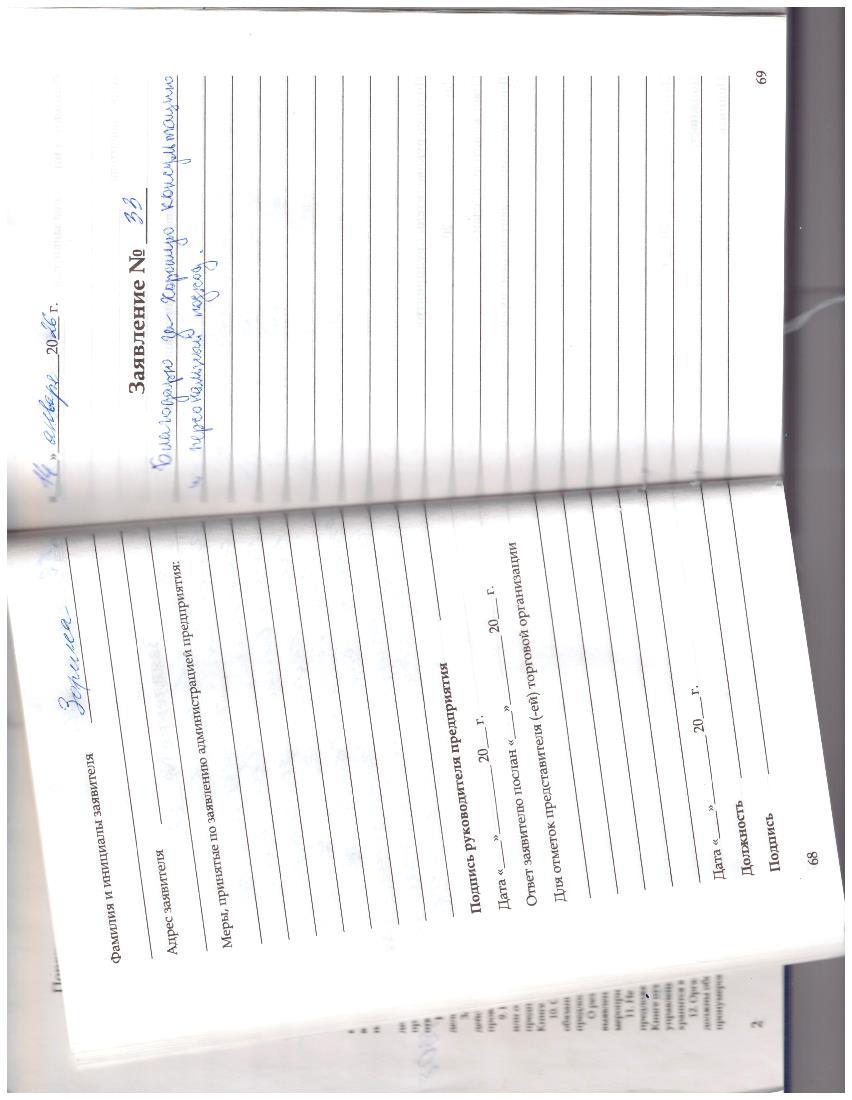 Фамилия и инициалы заявителя Зарина
Адрес заявителя
Меры, принятые по заявлению администрацией предприятия:
Подпись руководителя предприятия
Дата «___»________ 20__ г.
Ответ заявителю послан «___»________ 20__ г.
Для отметок представителя (-ей) торговой организации
Дата «___»________ 20__ г.
Должность
Подпись
68
«14» января 2026 г.
Заявление № 33
Благодарю за хорошую консультацию
и персональный подход.
69
2